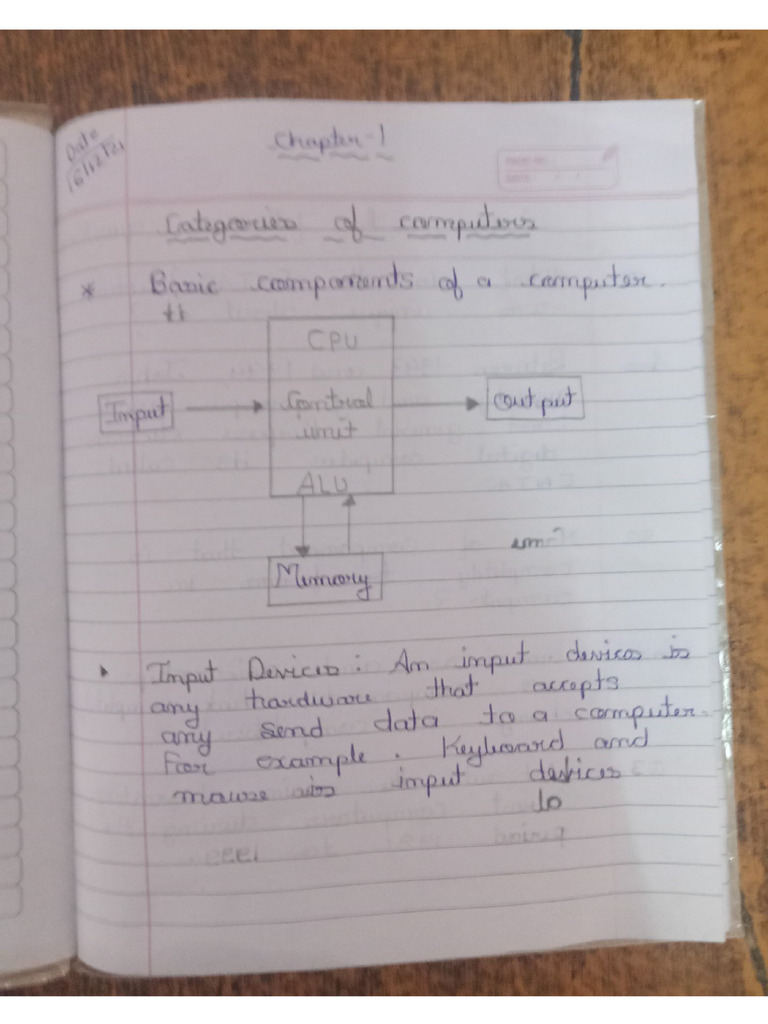 Chapter-1
Date
Categories of computers
* Basic components of a computer.
CPU
Input
Control
unit
Output
ALU
Memory
Input Devices: An input devices is
any hardware that accepts
any send data to a computer.
For example. Keyboard and
mouse is input devices